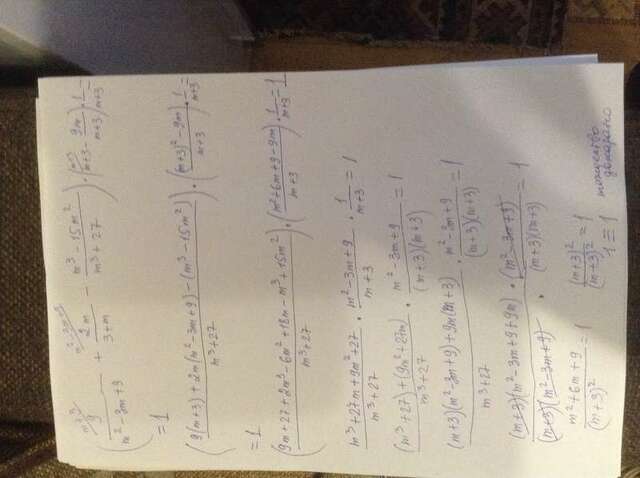 ( 9^{m+3}/(m²-3m+3) + 2m^{m²-3m+9}/(3+m) - (m³-15m²)/(m³+27) ) · ( m+3^{m+3}/(m+3) - 9m/(m+3) ) · 1/(m+3) =
= 1
( (9(m+3)+2m(m²-3m+9)-(m³-15m²))/(m³+27) ) · ( ((m+3)²-9m)/(m+3) ) · 1/(m+3) =
= 1
( (9m+27+2m³-6m²+18m-m³+15m²)/(m³+27) ) · ( (m²+6m+9-9m)/(m+3) ) · 1/(m+3) = 1
(m³+27m+9m²+27)/(m³+27) · (m²-3m+9)/(m+3) · 1/(m+3) = 1
((m³+27)+(9m²+27m))/(m³+27) · (m²-3m+9)/((m+3)(m+3)) = 1
((m+3)(m²-3m+9)+9m(m+3))/(m³+27) · (m²-3m+9)/((m+3)(m+3)) = 1
((m+3)(m²-3m+9+9m) · (m²-3m+9))/((m+3)(m²-3m+9) · (m+3)(m+3)) = 1
(m²+6m+9)/(m+3)² = 1 (m+3)²/(m+3)² = 1
1 ≡ 1 тождество
доказано